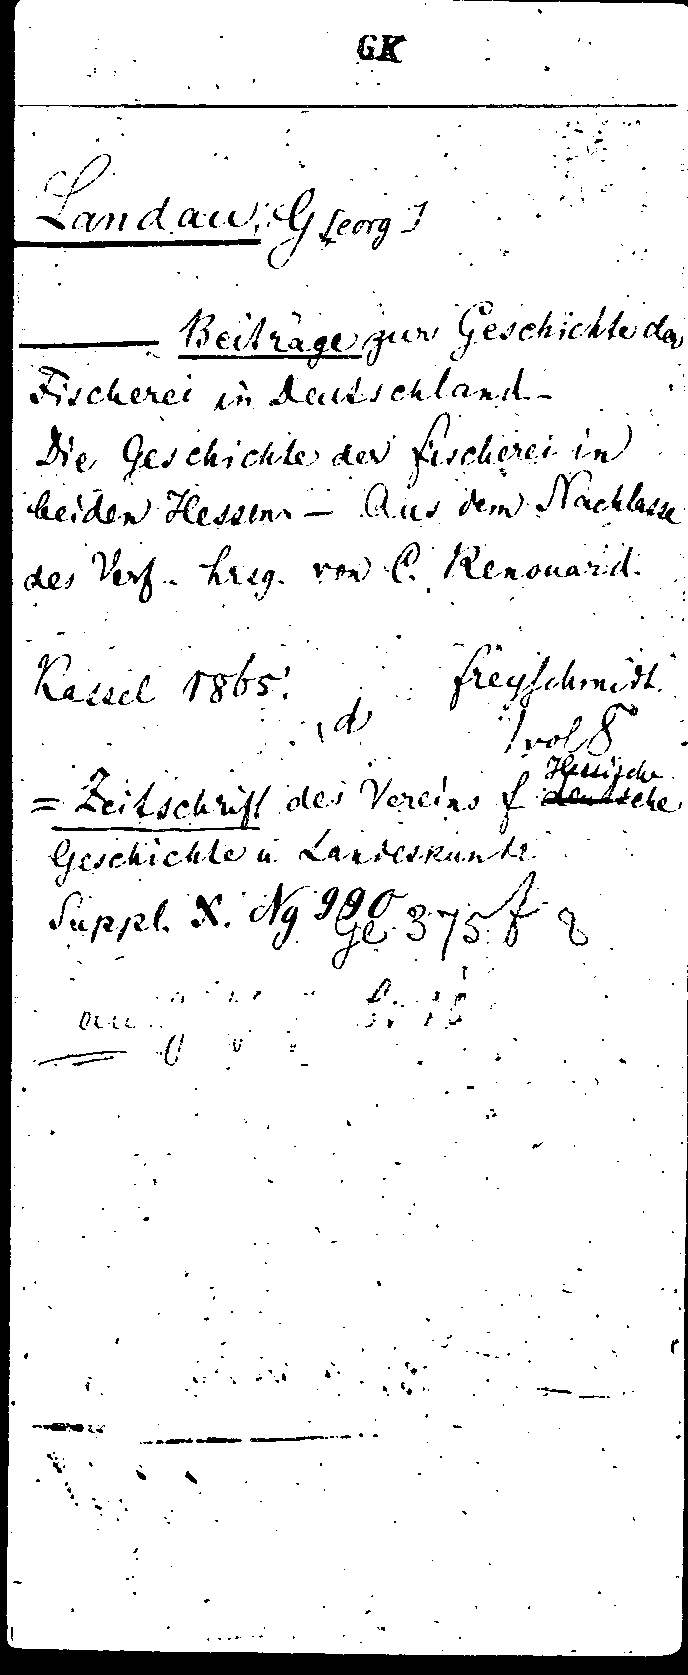 GK
Landau, G[eorg]
Beiträge zur Geschichte der
Fischerei in Deutschland -
Die Geschichte der Fischerei in
beiden Hessen. - Aus dem Nachlasse
des Verf. hrsg. von C. Renouard.
Kassel 1865. Freyschmidt.
d 1 vol 8°
= Zeitschrift des Vereins f Hessische deutsche
Geschichte u Landeskunde
Suppl. X. Ng 990
Ge 375 f 8